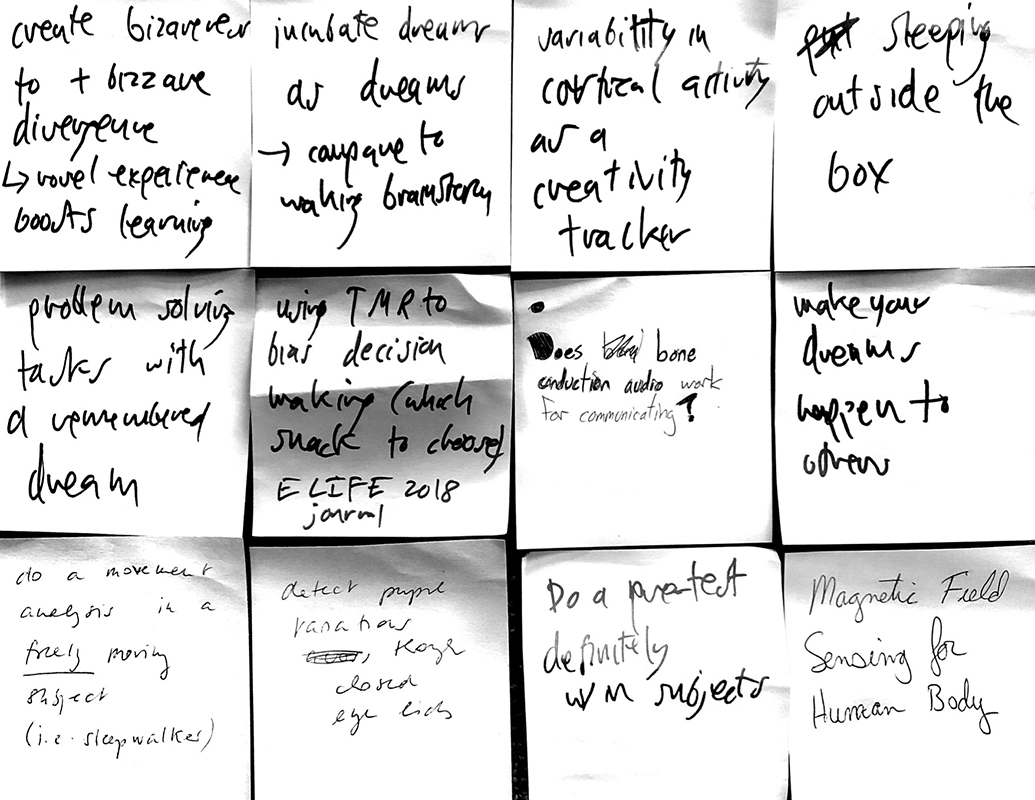 create bizareness
to + bizzare
divergence
↳ novel experience
boosts learning
incubate dreams
as dreams
→ compare to
waking brainstorm
variabitity in
cortical activity
as a
creativity
tracker
sleeping
outside the
box
problem solving
tasks with
a remembered
dream
using TMR to
bias decision
making (which
snack to choose)
ELIFE 2018
journal
Does bone
conduction audio work
for communicating?
make your
dreams
happen to
others
do a movement
analysis in a
freely moving
subject
(i.e. sleepwalker)
detect pupil
variations
closed
eye lids
Do a pre-test
definitely
w/ n subjects
Magnetic Field
Sensing for
Human Body